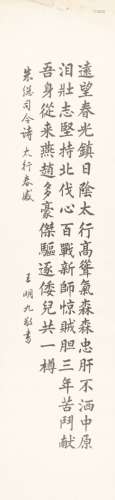 遠望春光鎮日陰太行高聳氣森森忠肝不洒中原
泪壯志堅持北伐心百戰新師惊賊胆三年苦鬥獻
吾身從來燕趙多豪傑驅逐倭兒共一樽
朱總司令诗 太行春感
王明九敬書